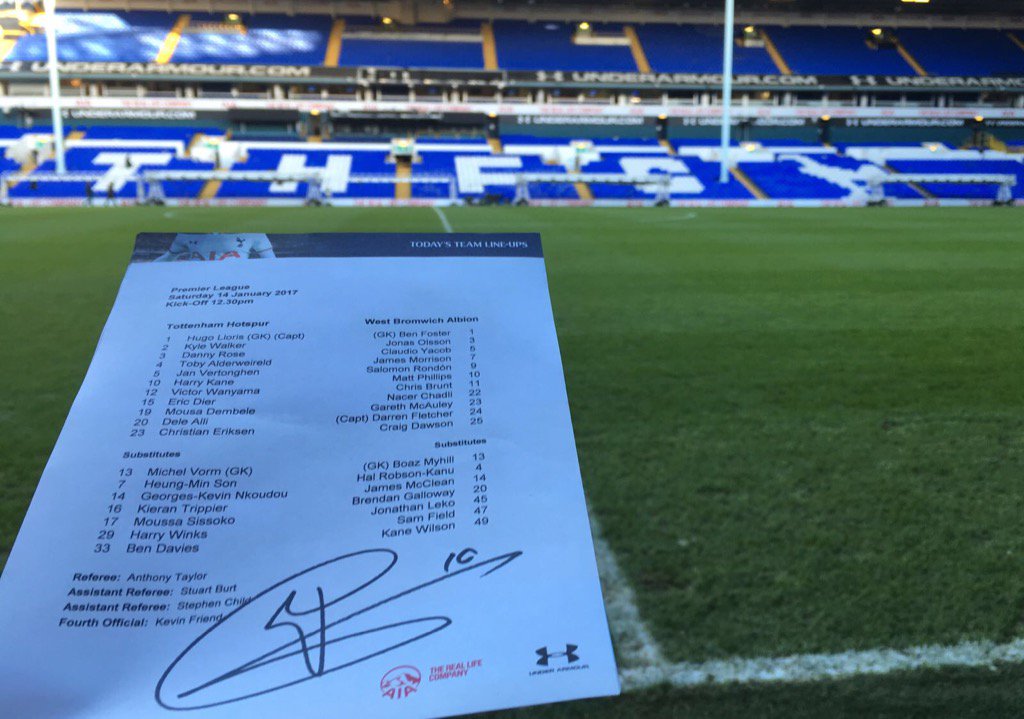 UNDERARMOUR.COM
UNDERARMOUR.COM
UNDERARMOUR
UNDERARMOUR
THFC
TODAY'S TEAM LINE-UPS
AIA
Premier League
Saturday 14 January 2017
Kick-Off 12.30pm
Tottenham Hotspur
1 Hugo Lloris (GK) (Capt)
2 Kyle Walker
3 Danny Rose
4 Toby Alderweireld
5 Jan Vertonghen
10 Harry Kane
12 Victor Wanyama
15 Eric Dier
19 Mousa Dembele
20 Dele Alli
23 Christian Eriksen
Substitutes
13 Michel Vorm (GK)
7 Heung-Min Son
14 Georges-Kevin Nkoudou
16 Kieran Trippier
17 Moussa Sissoko
29 Harry Winks
33 Ben Davies
West Bromwich Albion
(GK) Ben Foster 1
Jonas Olsson 3
Claudio Yacob 5
James Morrison 7
Salomon Rondón 9
Matt Phillips 10
Chris Brunt 11
Nacer Chadli 22
Gareth McAuley 23
(Capt) Darren Fletcher 24
Craig Dawson 25
Substitutes
(GK) Boaz Myhill 13
Hal Robson-Kanu 4
James McClean 14
Brendan Galloway 20
Jonathan Leko 45
Sam Field 47
Kane Wilson 49
Referee: Anthony Taylor
Assistant Referee: Stuart Burt
Assistant Referee: Stephen Child
Fourth Official: Kevin Friend
16
AIA
THE REAL LIFE
COMPANY
UNDER ARMOUR